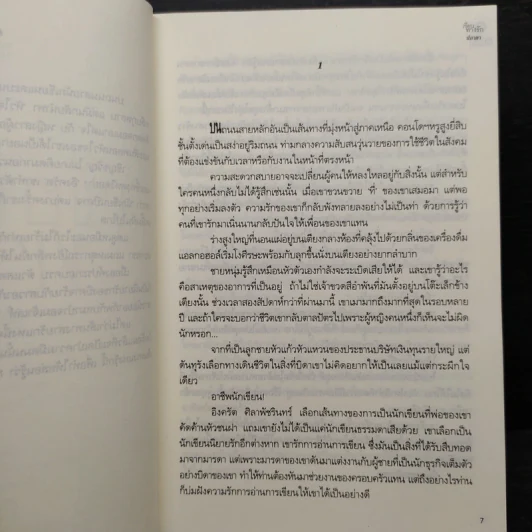 1
บนถนนสายหลักอันเป็นเส้นทางที่มุ่งหน้าสู่ภาคเหนือ คอนโดฯหรูสูงยี่สิบ
ชั้นตั้งเด่นเป็นสง่าอยู่ริมถนน ท่ามกลางความสับสนวุ่นวายของการใช้ชีวิตในสังคม
ที่ต้องแข่งขันกับเวลาหรือกับงานในหน้าที่ตรงหน้า
ความสะดวกสบายอาจจะเปลี่ยนผู้คนให้หลงใหลอยู่กับสิ่งนั้น แต่สำหรับ
ใครคนหนึ่งกลับไม่ได้รู้สึกเช่นนั้น เมื่อเขาขวนขวาย ‘ที่’ ของเขาเสมอมา แต่พอ
ทุกอย่างเริ่มลงตัว ความรักของเขาก็กลับพังทลายลงอย่างไม่เป็นท่า ด้วยการรู้ว่า
คนที่เขารักมาเนิ่นนานกลับปันใจให้เพื่อนของเขาแทน
ร่างสูงใหญ่ที่นอนแผ่อยู่บนเตียงกลางห้องที่คลุ้งไปด้วยกลิ่นของเครื่องดื่ม
แอลกอฮอล์เริ่มโงศีรษะพร้อมกับลุกขึ้นนั่งบนเตียงอย่างยากลำบาก
ชายหนุ่มรู้สึกเหมือนหัวตัวเองกำลังจะระเบิดเสียให้ได้ และเขารู้ว่าอะไร
คือสาเหตุของอาการที่เป็นอยู่ ถ้าไม่ใช่เจ้าขวดสีอำพันที่มันตั้งอยู่บนโต๊ะเล็กข้าง
เตียงนั้น ช่วงเวลาสองสัปดาห์กว่าที่ผ่านมานี้ เขาเมามากถึงมากที่สุดในรอบหลาย
ปี และถ้าใครจะบอกว่าชีวิตเขากลับตาลปัตรไปเพราะผู้หญิงคนหนึ่งก็เห็นจะไม่ผิด
นักหรอก...
จากที่เป็นลูกชายหัวแก้วหัวแหวนของประธานบริษัทเงินทุนรายใหญ่ แต่
ดันทุรังเลือกทางเดินชีวิตในสิ่งที่บิดาเขาไม่คิดอยากให้เป็นเลยแม้แต่กระผีกใจ
เดียว
อาชีพนักเขียน!
อิงครัต ศิลาพัชรินทร์ เลือกเส้นทางของการเป็นนักเขียนที่พ่อของเขา
คัดค้านหัวชนฝา แถมเขายังไม่ได้เป็นแค่นักเขียนธรรมดาเสียด้วย เขาเลือกเป็น
นักเขียนนิยายรักอีกต่างหาก เขารักการอ่านการเขียน ซึ่งมันเป็นสิ่งที่ได้รับสืบทอด
มาจากมารดา แต่เพราะมารดาของเขาดันมาแต่งงานกับผู้ชายที่เป็นนักธุรกิจเต็มตัว
อย่างบิดาของเขา ทำให้ท่านต้องหันมาช่วยงานของครอบครัวแทน แต่ถึงอย่างไรท่าน
ก็บ่มฝังความรักการอ่านการเขียนให้เขาได้เป็นอย่างดี
7